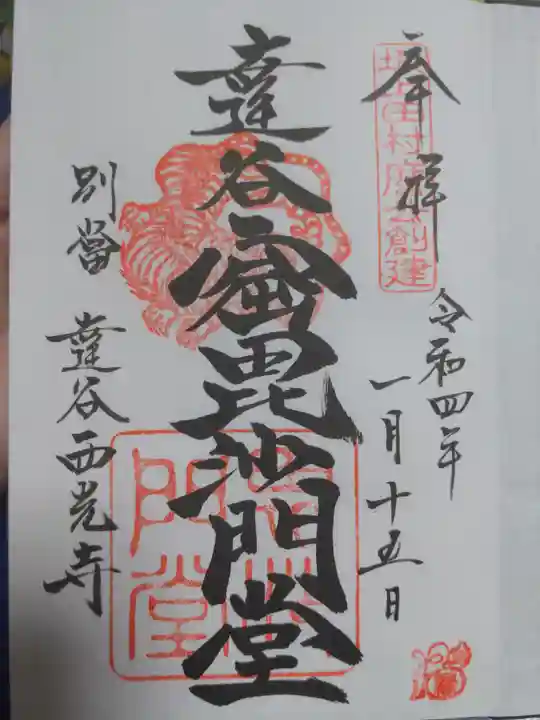 奉拝
坂上田村麿公創建
令和四年
一月十五日
達谷窟毘沙門堂
別當 達谷西光寺